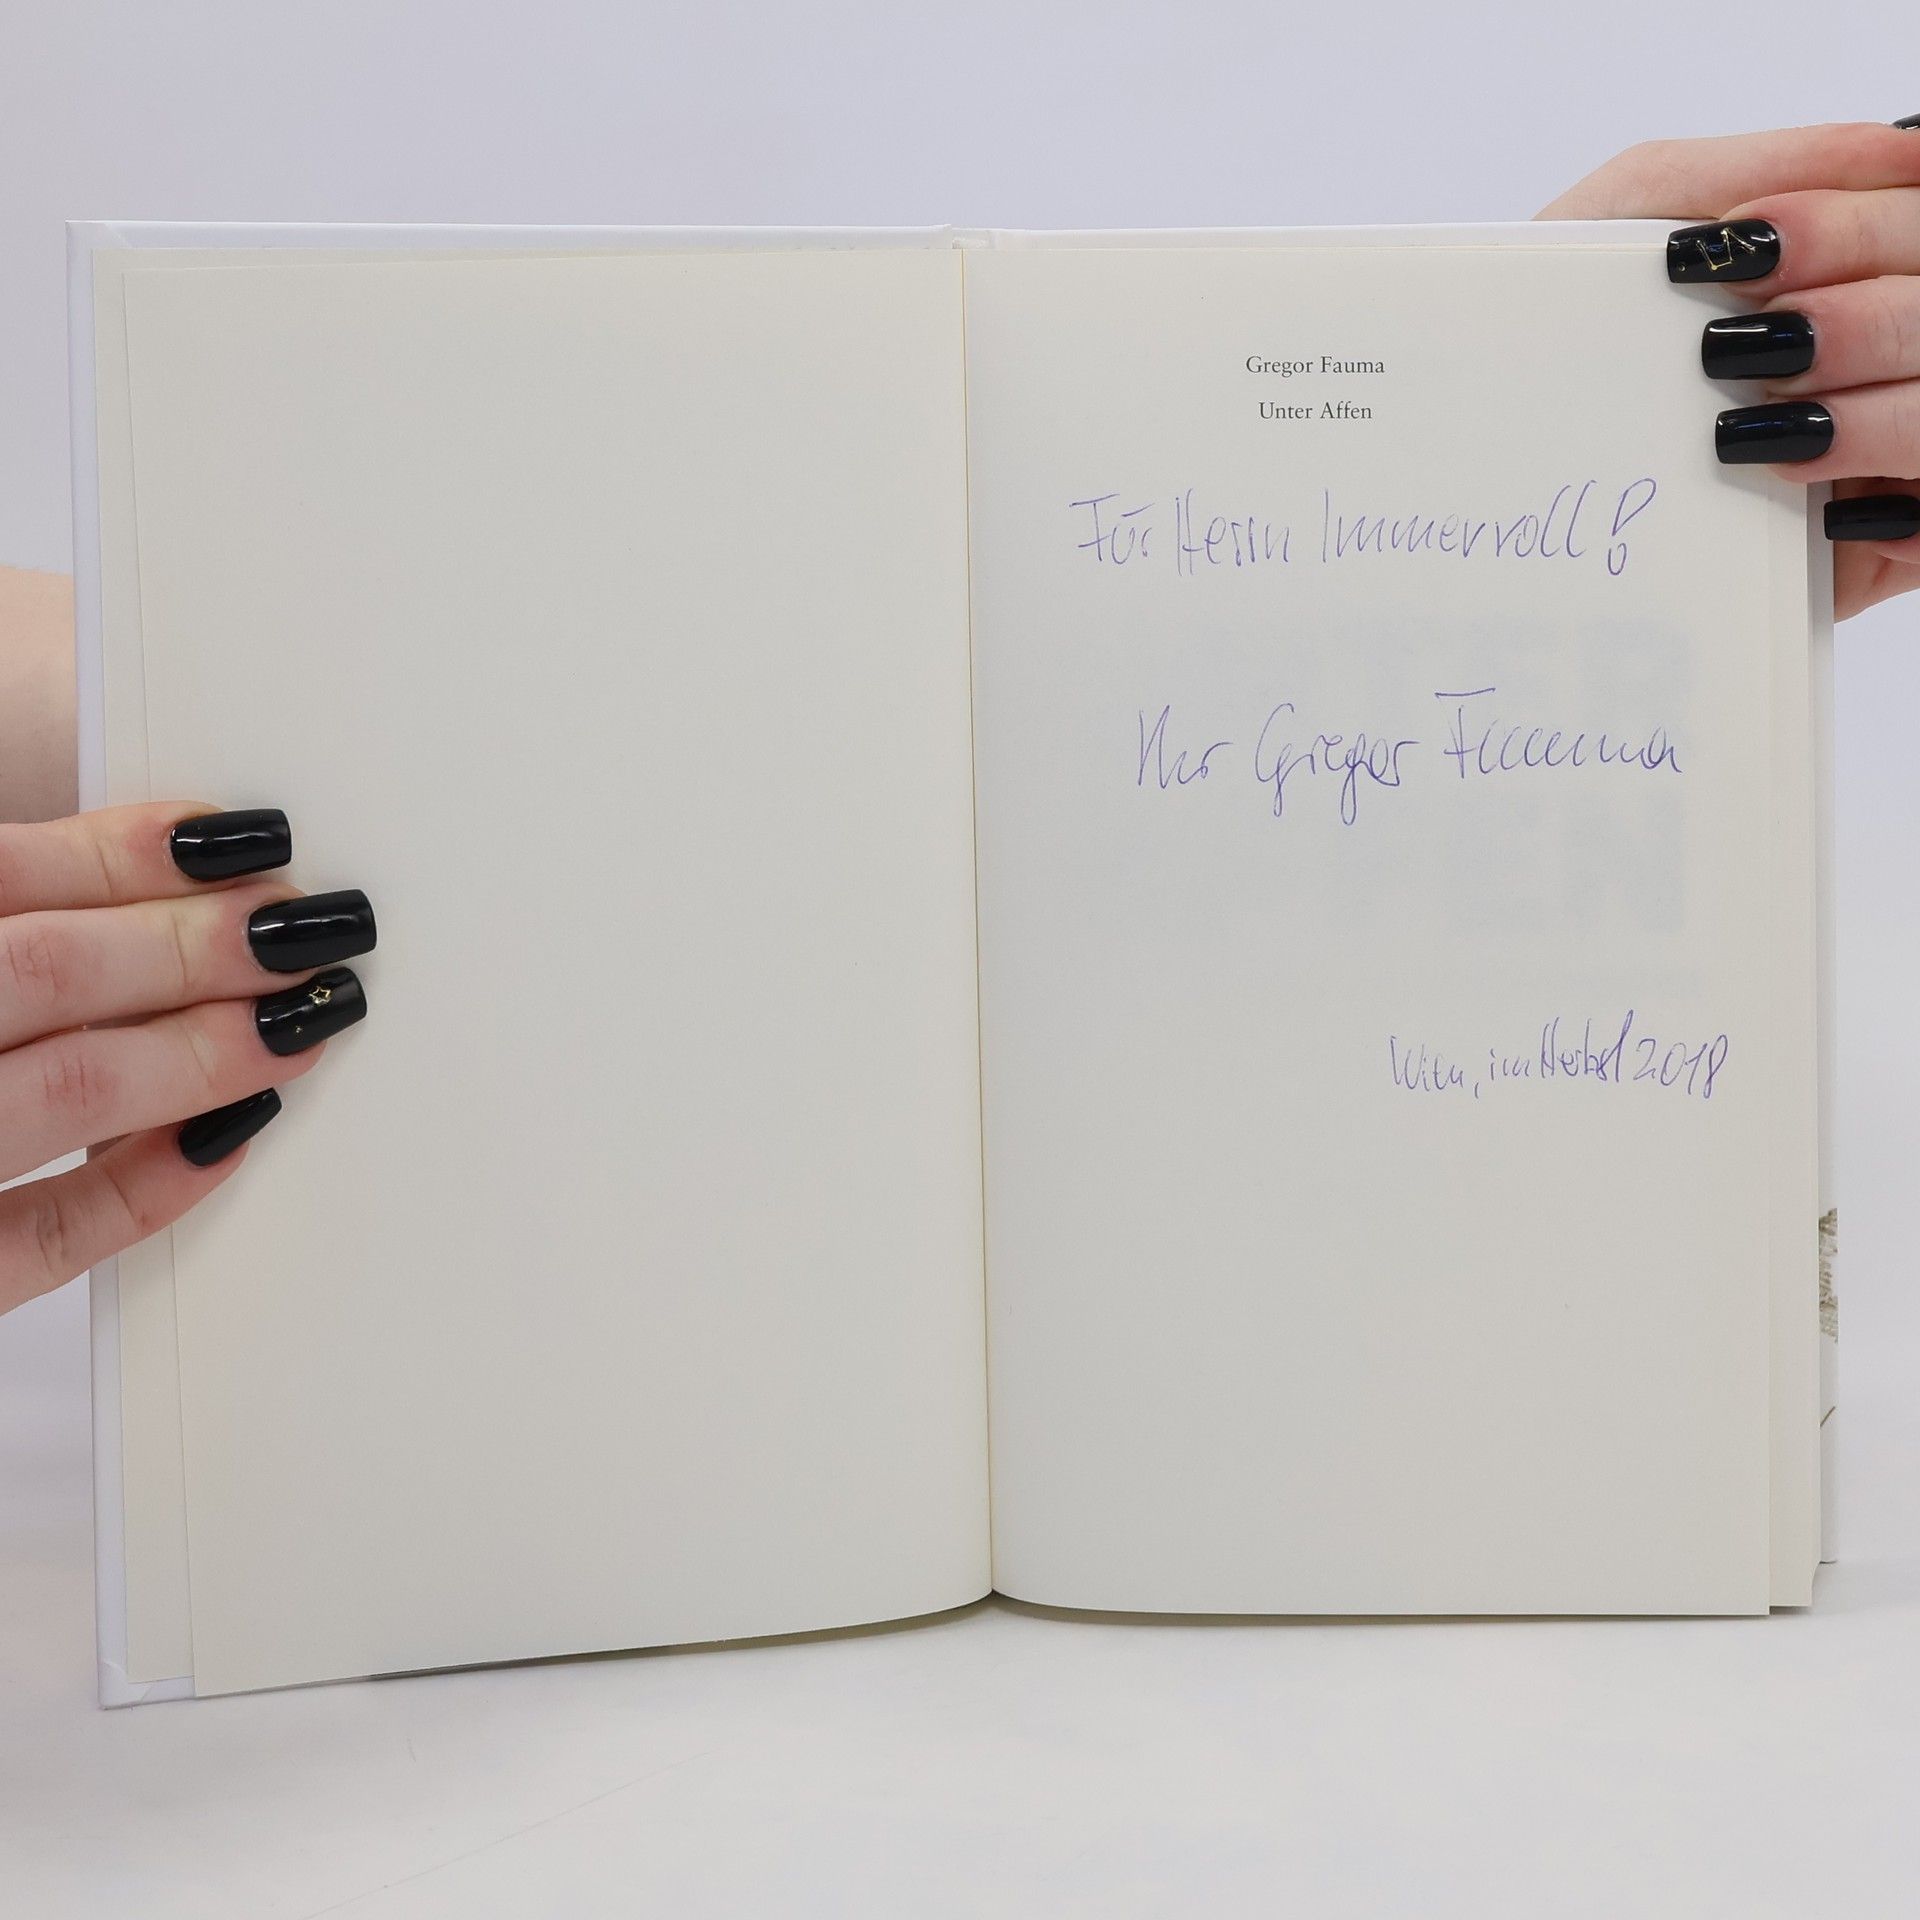 Gregor Fauma
Unter Affen
Für Herrn Immervoll!
Ihr Gregor Fauma
Wien, im Herbst 2018